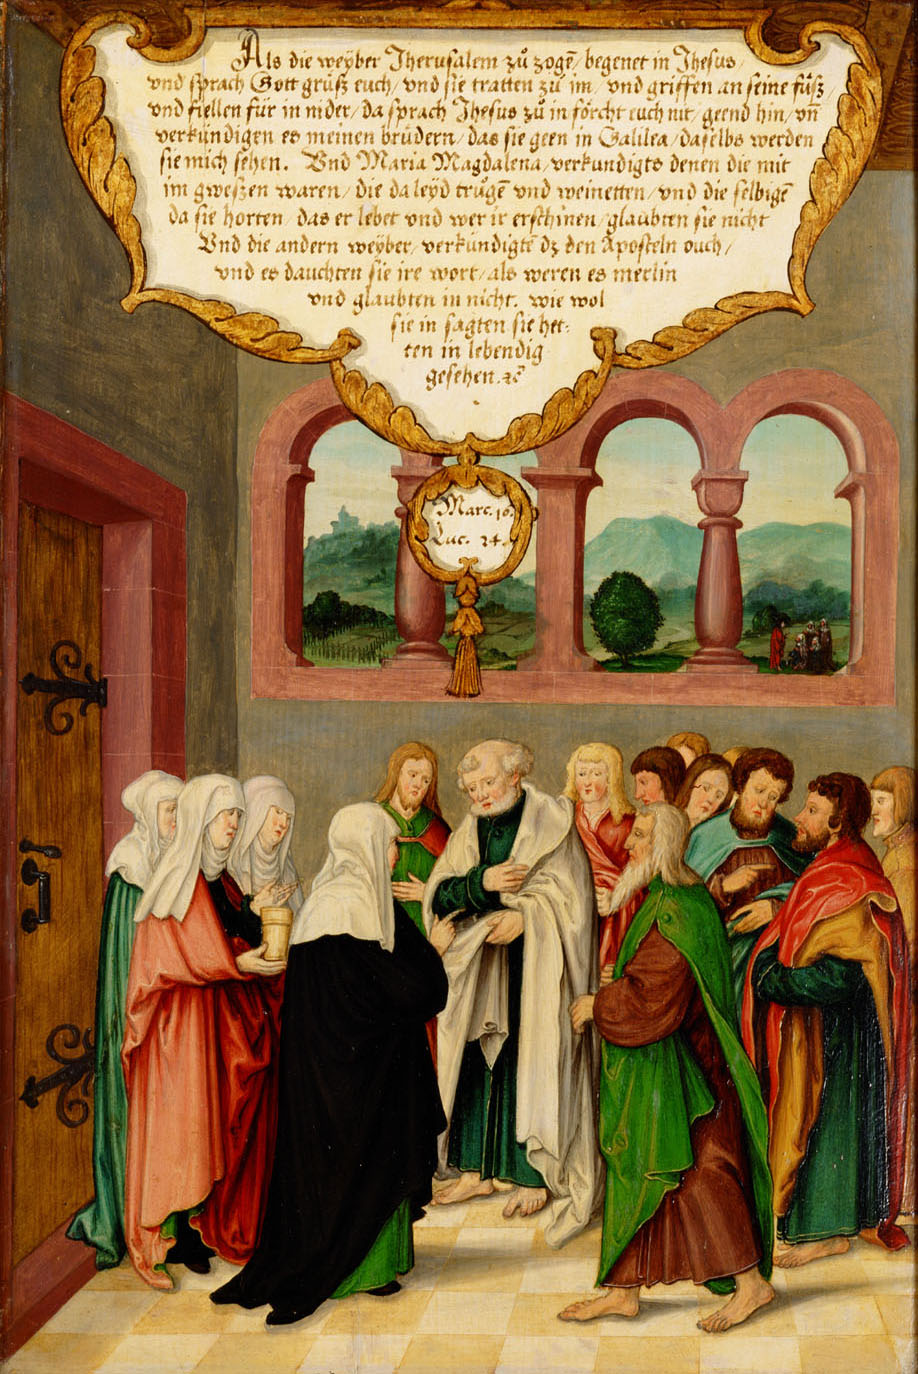 Als die weyber Jherusalem zů zogē/ begenet in Jhesus/
vnd sprach Gott grůsz euch/ vnd sie tratten zů im/ vnd griffen an seine fůsz/
vnd fiellen für in nider/ da sprach Jhesus zů in förcht euch nit/ geend hin/ vn̄
verkündigen es meinen brüdern/ das sie geen in Galilea/ daselbs werden
sie mich sehen. Vnd Maria Magdalena/ verkundigts denen die mit
im gweszen waren/ die da leyd trůgē vnd weinetten/ vnd die selbigē
da sie horten/ das er lebet vnd wer ir erschinen/ glaubten sie nicht
Vnd die andern weyber/ verkündigtē dz den Aposteln ouch/
vnd es dauchten sie ire wort/ als weren es merlin
vnd glaubten in nicht. wie wol
sie in sagten sie het:
ten in lebendig
gesehen. ꝛc̄
Marc. 16.
Luc. 24.